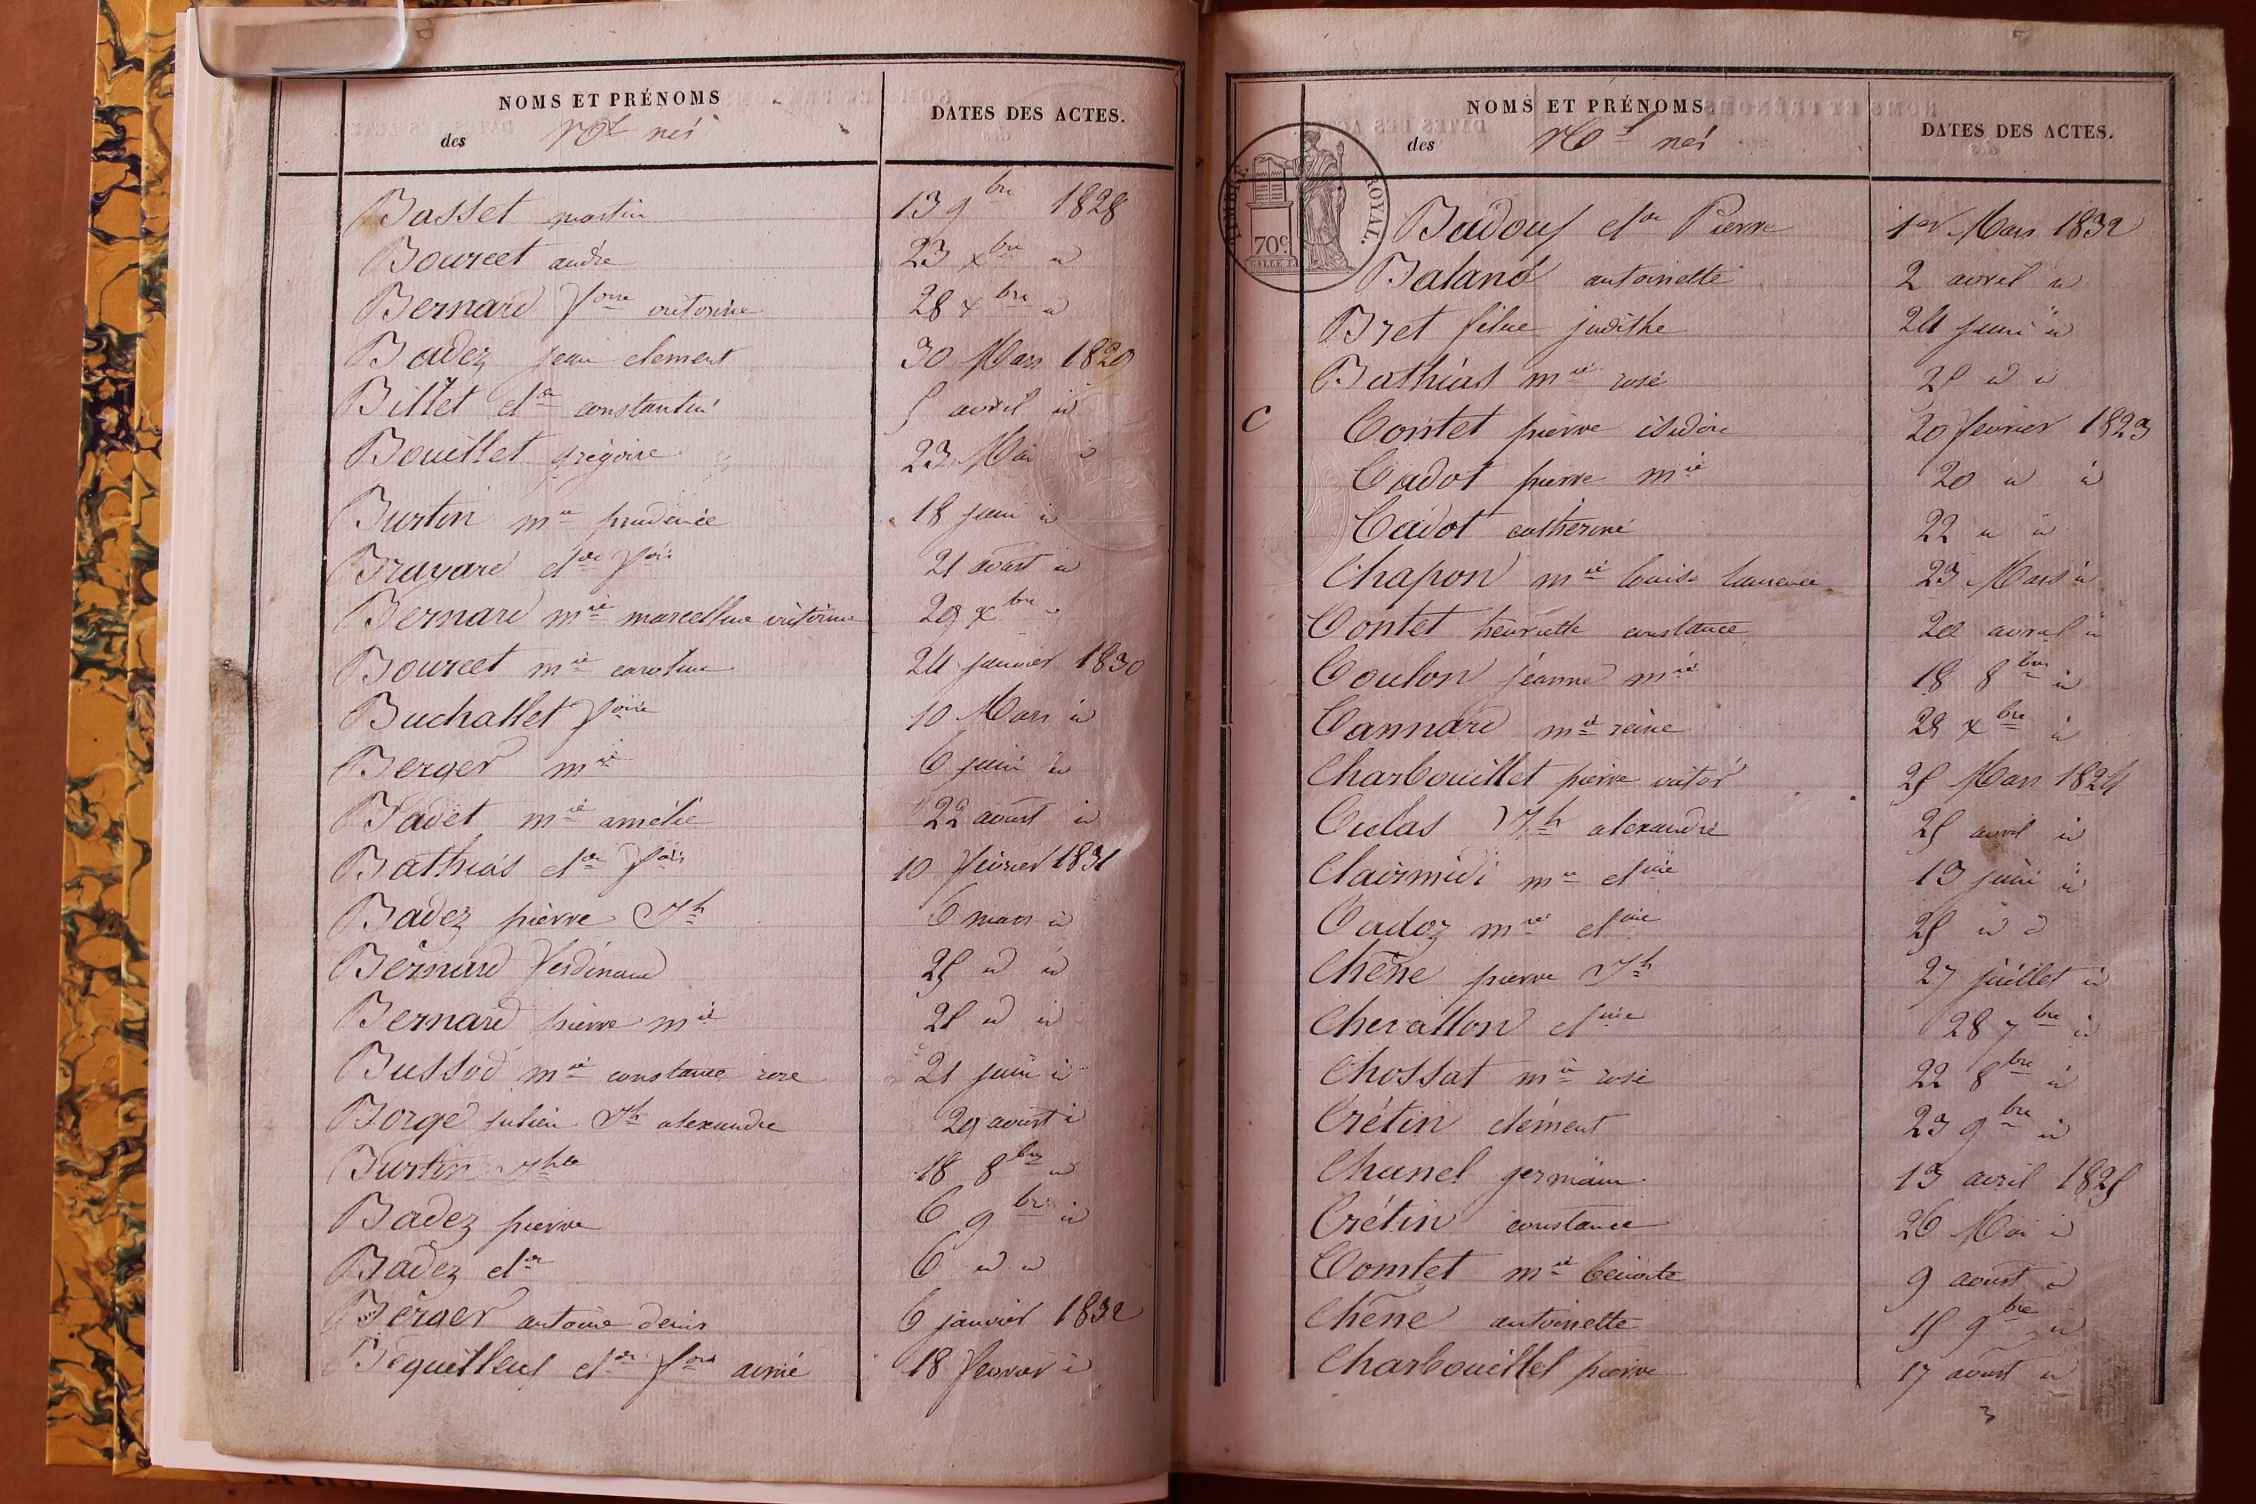 NOMS ET PRÉNOMS
des nés
DATES DES ACTES.
Basset martin 13 9bre 1828
Bourcet andré 23 xbre id
Bernard foise victorine 28 xbre id
Badez jean clement 30 Mars 1829
Billet cde constantin 5 avril id
Bouillet grégoire 23 Mai id
Burtin mie prudence 18 juin id
Brayard cde fois 21 aoust id
Bernard mie marcelline victorine 29 xbre id
Bourcet mie caroline 24 janvier 1830
Buchallet foise 10 Mars id
Berger mie 6 juin id
Badet mie amélie 22 aoust id
Bathias cde fois 10 fevrier 1831
Badez pierre Jh 6 mars id
Bernard ferdinand 25 id id
Bernard pierre mie 25 id id
Bussod mie constance rose 21 juin id
Borge julien Jh alexandre 29 aoust id
Burtin Jhte 18 8bre id
Badez pierre 6 9bre id
Badez cde 6 id id
Berger antoine denis 6 janvier 1832
Bequilleul cde fois aimé 18 fevrier id
NOMS ET PRÉNOMS
des nés
DATES DES ACTES.
TIMBRE ROYAL.
70c
Badouf cde Pierre 1er Mars 1832
Baland antoinette 2 avril id
Bret judithe 24 juin id
Bathias mie rose 25 id id
C Contet pierre isidore 20 fevrier 1823
Cadot pierre mie 20 id id
Cadot catherine 22 id id
Chapon mie louise laurence 23 Mars id
Contet henriette constance avril id
Coulon jeanne mie 18 8bre id
Cannard mie reine 28 xbre id
Charbouillet pierre victor 25 Mars 1824
Culas Jh alexandre 25 avril id
Clairmidi mie cdine 13 juin id
Cadoz mie cdine 25 id id
Chêne pierre Jh 27 juillet id
Chevallon cdine 28 7bre id
Chossat mie rose 22 8bre id
Crétin clément 23 9bre id
Chanel germain 13 avril 1825
Crétin constance 26 Mai id
Comtet mie benoite 9 aoust id
Chêne antoinette 15 9bre id
Charbouillet pierre 17 aoust id
3